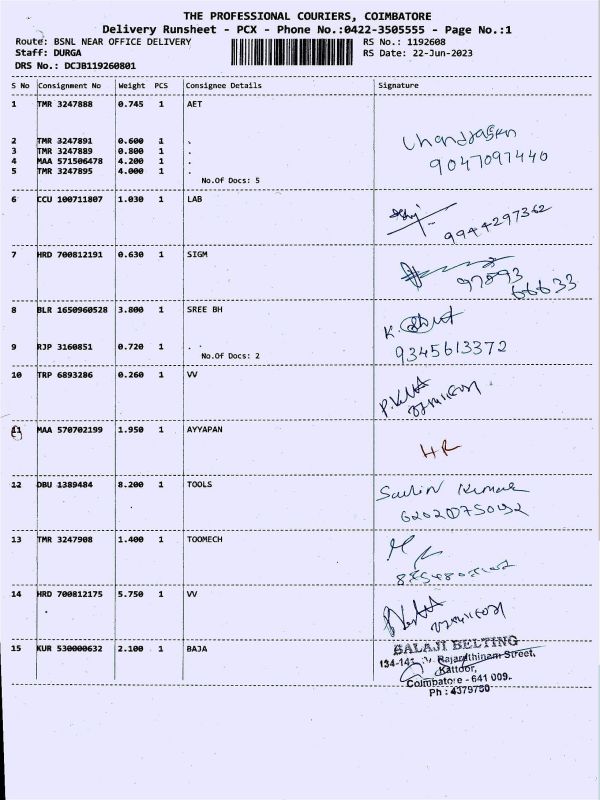 THE PROFESSIONAL COURIERS, COIMBATORE
Delivery Runsheet - PCX - Phone No.:0422-3505555 - Page No.:1
Route: BSNL NEAR OFFICE DELIVERY RS No.: 1192608
Staff: DURGA RS Date: 22-Jun-2023
DRS No.: DCJB119260801
S No Consignment No Weight PCS Consignee Details Signature
1 TMR 3247888 0.745 1 AET
2 TMR 3247891 0.600 1 .
3 TMR 3247889 0.800 1 .
4 MAA 571506478 4.200 1 .
5 TMR 3247895 4.000 1 .
No.Of Docs: 5
9047097440
6 CCU 100711807 1.030 1 LAB
9944297362
7 HRD 700812191 0.630 1 SIGM
97893
66633
8 BLR 1650960528 3.800 1 SREE BH
K.
9 RJP 3160851 0.720 1 . .
No.Of Docs: 2
9345613372
10 TRP 6893286 0.260 1 VV
11 MAA 570702199 1.950 1 AYYAPAN
HR
12 DBU 1389484 8.200 1 TOOLS
Kumar
13 TMR 3247908 1.400 1 TOOMECH
14 HRD 700812175 5.750 1 VV
15 KUR 530000632 2.100 1 BAJA
BALAJI BELTING
Rajarathinam Street,
Kattoor,
Coimbatore - 641 009.
Ph : 4379750